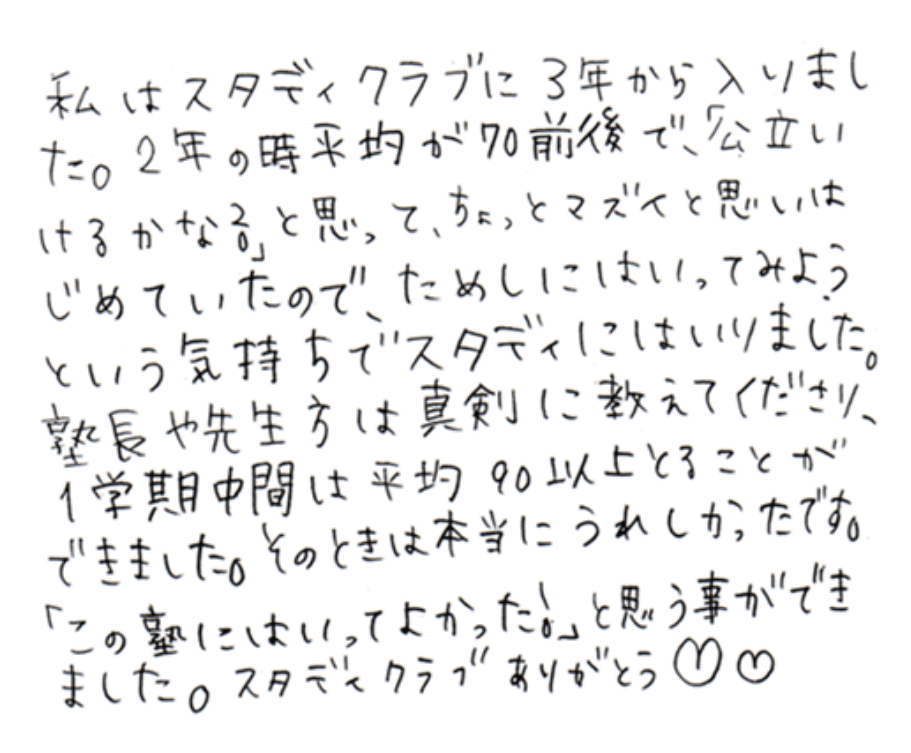 私はスタディクラブに3年から入りまし
た。2年の時平均が70前後で、「公立い
けるかな?」と思って、ちょっとマズイと思いは
じめていたので、ためしにはいってみよう
という気持ちでスタディにはいりました。
塾長や先生方は真剣に教えてくださり、
1学期中間は平均90以上とることが
できました。そのときは本当にうれしかったです。
「この塾にはいってよかった!」と思う事ができ
ました。スタディクラブありがとう♡♡